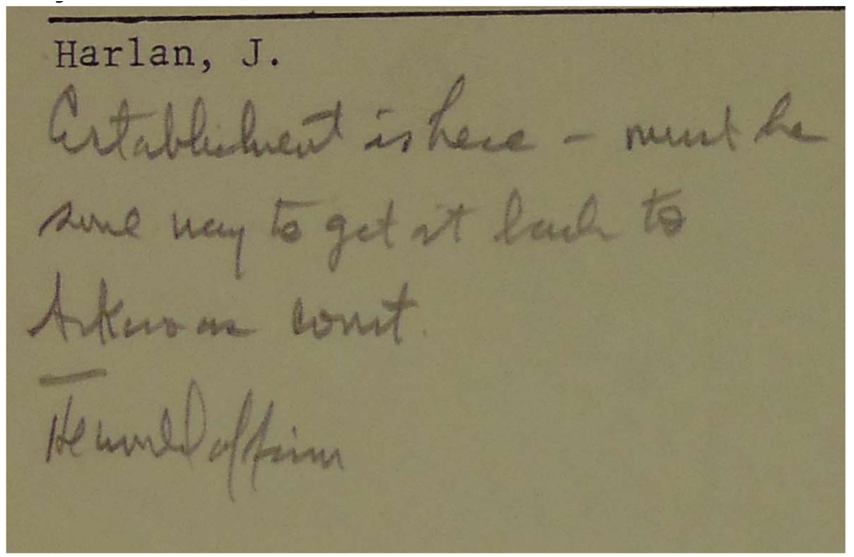 Harlan, J.
Establishment is here - must be
some way to get it back to
Arkansas court.
He would affirm